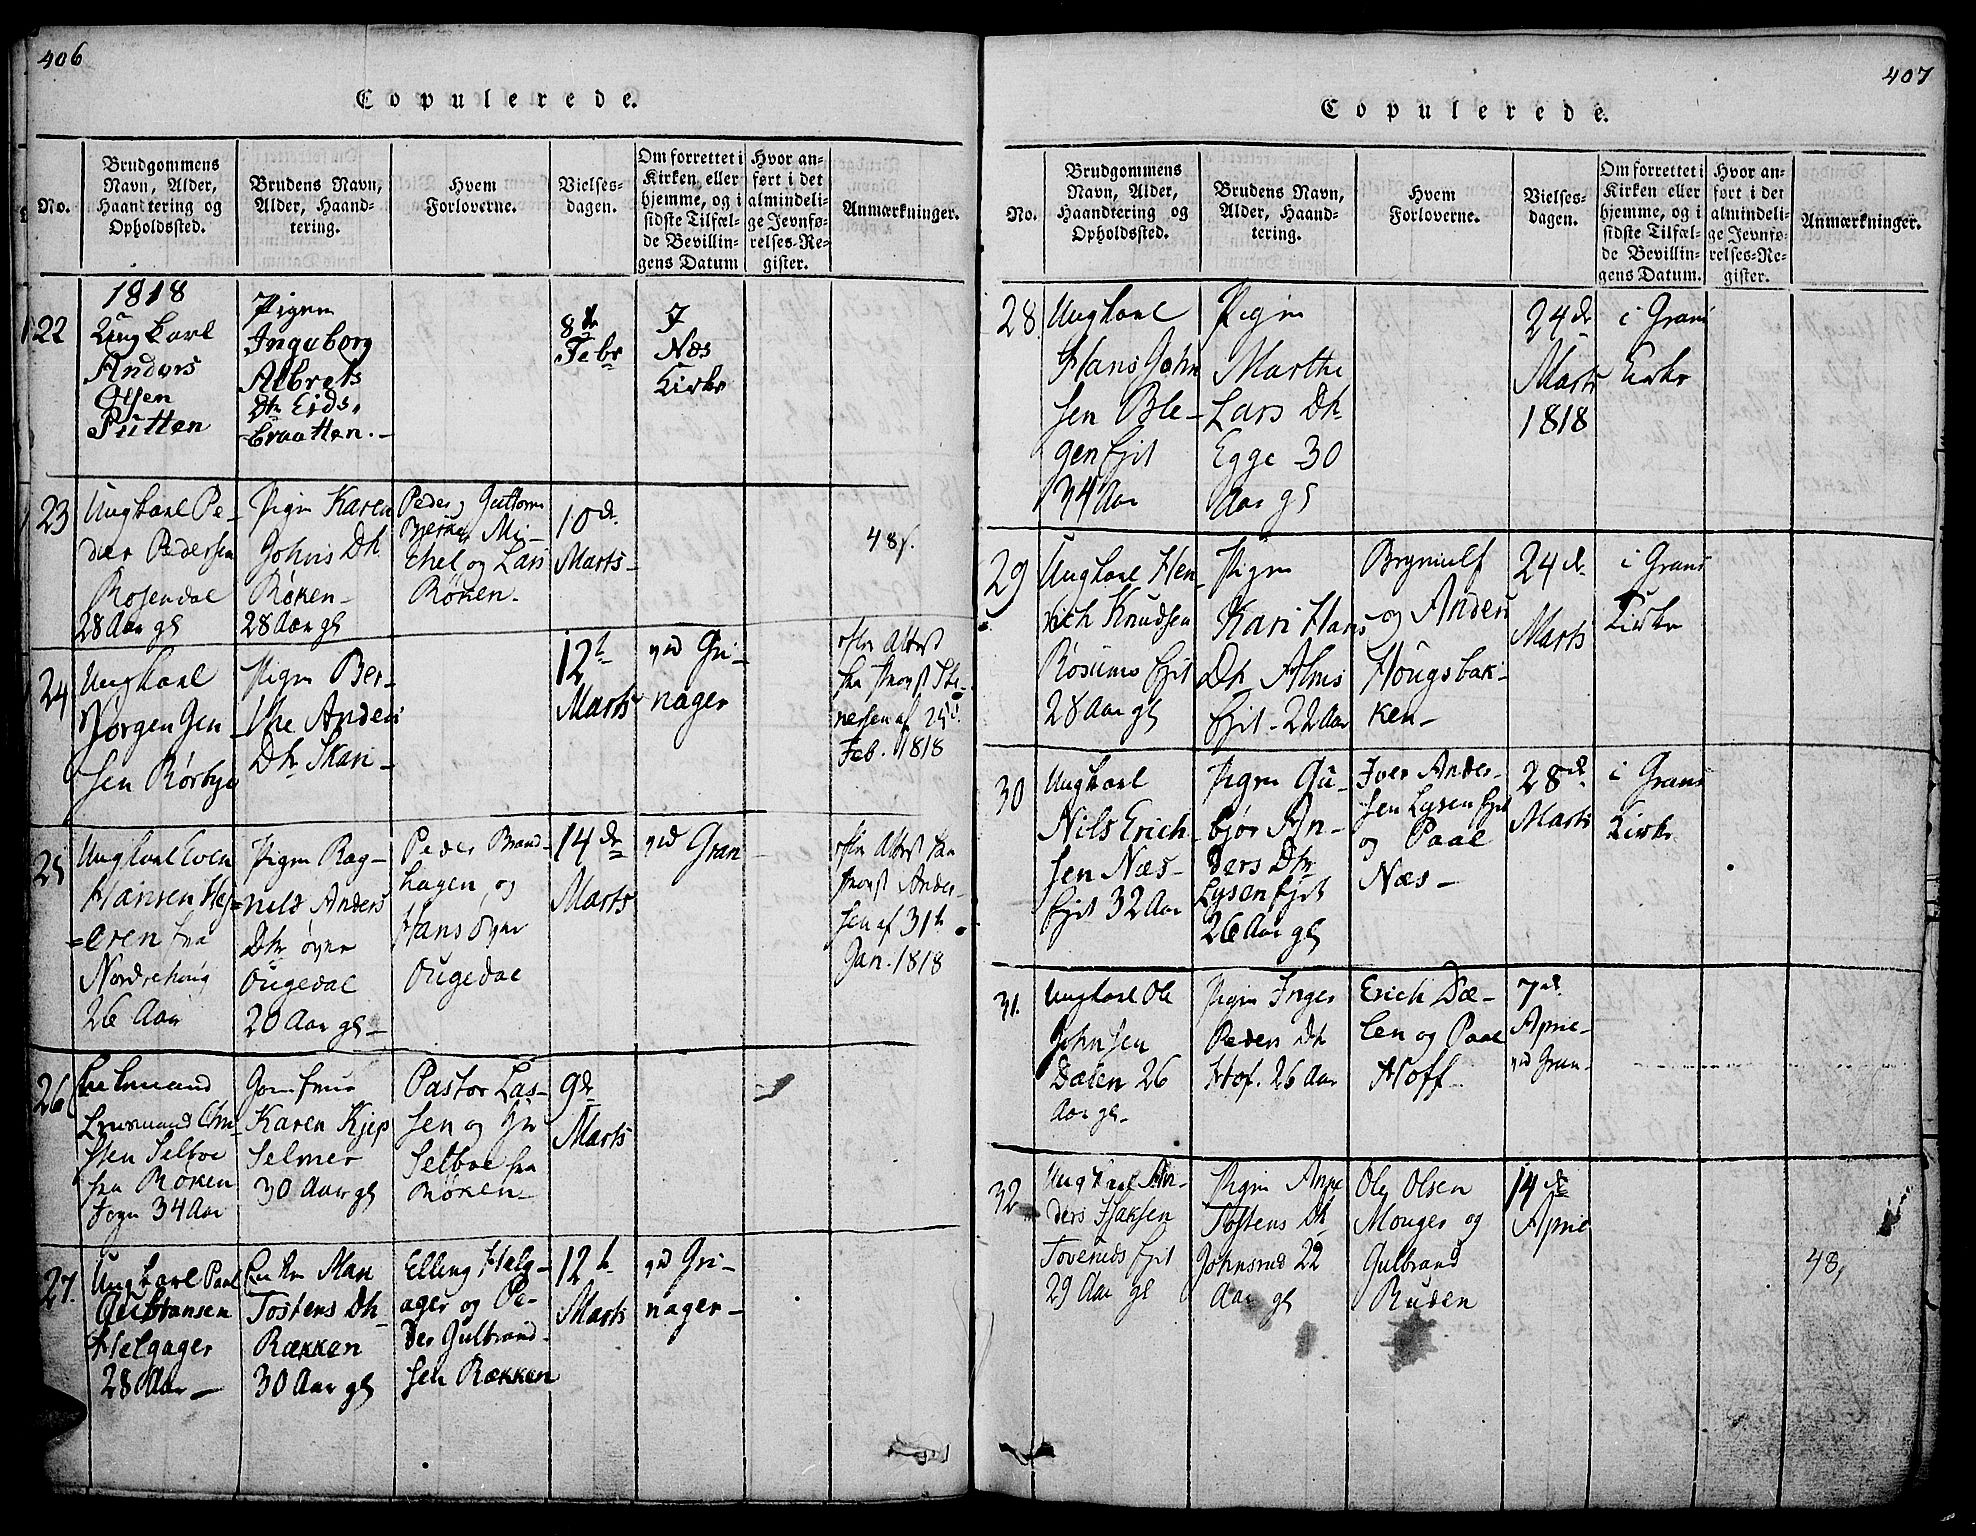 406
Copulerede.
No.
Brudgommens
Navn, Alder,
Haandtering og
Opholdssted.
Brudens Navn,
Alder, Haand-
tering.
Hvem
Forloverne.
Vielses-
dagen.
Om forrettet i
Kirken eller
hjemme, og i
sidste Tilfæl-
de Bevillin-
gens Datum
Hvor an-
ført i det
almindeli-
ge Jevnfø-
relses-Re-
gister.
Anmærkninger.
22
1818
Ungkarl
Anders
Olsen
Putten
Pigen
Ingeborg
Albrets
Dtr Eids,
braatten.-
8de
Febr
I
Næs
Kirke
23
Ungkarl Pe-
der Pedersen
Rosendal
28 Aar gl
Pigen Karen
Johns Dtr
Røken-
28 Aar gl
Peder, Guttorm
Bjerke, Mi-
chel og Lars
Røken-
10de
Marts-
48 s.
24
Ungkarl
Jørgen Jen-
sen Rørbye
Pigen Ber-
the Anders
Dtr Skari-
12te
Marts
ved Gri-
nager
efter Attest
fra Provst Ste-
nersen af 25de
Feb. 1818
25
Ungkarl Even
Hansen Hej-
=eren fra
Nordrehoug
26 Aar
Pigen Rag-
nild Anders
Dtr øvre
Ougedal
20 Aar gl-
Peder Brand-
hagen, og
Hans øvre
Ougedal
14de
Marts
ved Gran
efter Attest fra
Provst Ander-
sen af 31te
Jan. 1818
26
Enkemand
Lensmand Chri-
sten Selboe
fra Røken
Sogn 34 Aar
Jomfrue
Karen Kjep
Selmer
30 Aar gl
Pastor Las-
sen og Hr
Selboe fra
Røken-
9de
Marts
27.
Ungkarl Paal
Gulbransen
Helgager
28 Aar-
Enken Mari
Tostens Dtr
Rækken
30 Aar gl
Elling Helg-
ager og Pe-
der Gulbrand-
sen Rækken
12te
Marts
ved Gri-
nager-
407
Copulerede.
No.
Brudgommens
Navn, Alder,
Haandtering og
Opholdssted.
Brudens Navn,
Alder, Haand-
tering.
Hvem
Forloverne.
Vielses-
dagen.
Om forrettet i
Kirken eller
hjemme, og i
sidste Tilfæl-
de Bevillin-
gens Datum.
Hvor an-
ført i det
almindeli-
ge Jevnfø-
relses-Re-
gister.
Anmærkninger.
28
Ungkarl
Hans John
sen Ble-
gen Ejet
34 Aar
Pigen
Marthe
Lars Dtr
Egge 30
Aar gl
24de
Marts
1818
i Grans
Kirke
29
Ungkarl Hen-
rich Knudsen
Røsums Ejet
28 Aar gl
Pigen
Kari Hans
Dtr Alms
Ejet-22 Aar
Bryniulf
og Anders
Hougsbak-
ken-
24de
Marts
i Grans
Kirke
30
Ungkarl
Nils Erich
sen Næs-
Ejet 32 Aar
Pigen Gu-
bjør An-
ders Dtr
Lysen Ejet
26 Aar gl
Iver Ander-
sen Lysen Ejet
og Paal
Næs-
28de
Marts
i Grans
Kirke
31.
Ungkarl Ole
Johnsen
Dælen 26
Aar gl-
Pigen Inger
Peders Dtr
Hof. 26 Aar
Erich Dæ-
len og Paal
Hoff-
7de
April-
ved Gran-
32
Ungkarl An-
ders Isaksen
Toveruds Ejet
29 Aar gl
Pigen Anne
Tostens Dtr
Johnsrud 22
Aar gl
Ole Olsen
Monger og
Gulbrand
Ruden
14de
April
48,